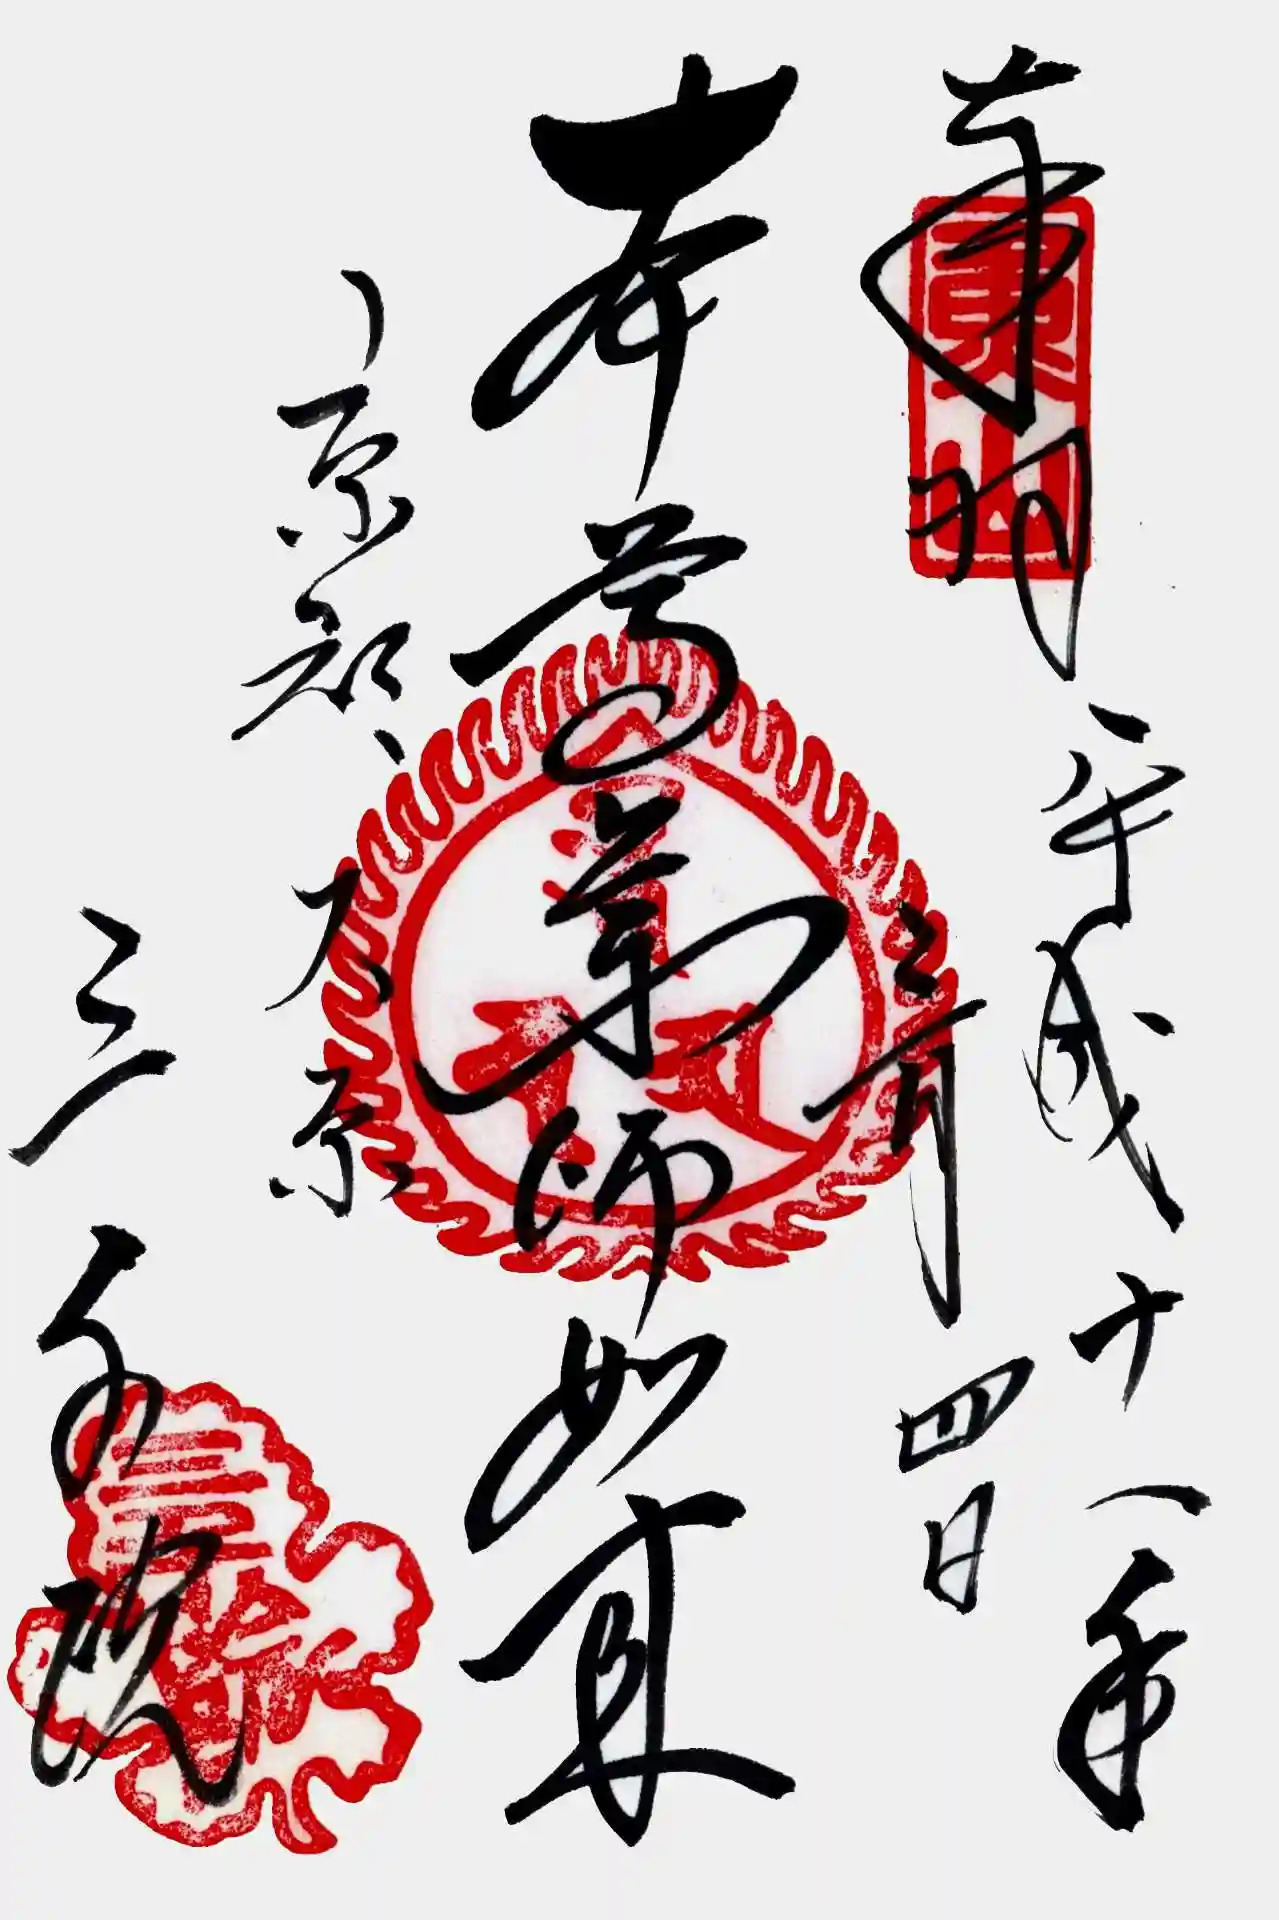 奉拝
東山
平成十一年
三月四日
本尊薬師如来
京都大原
三千院